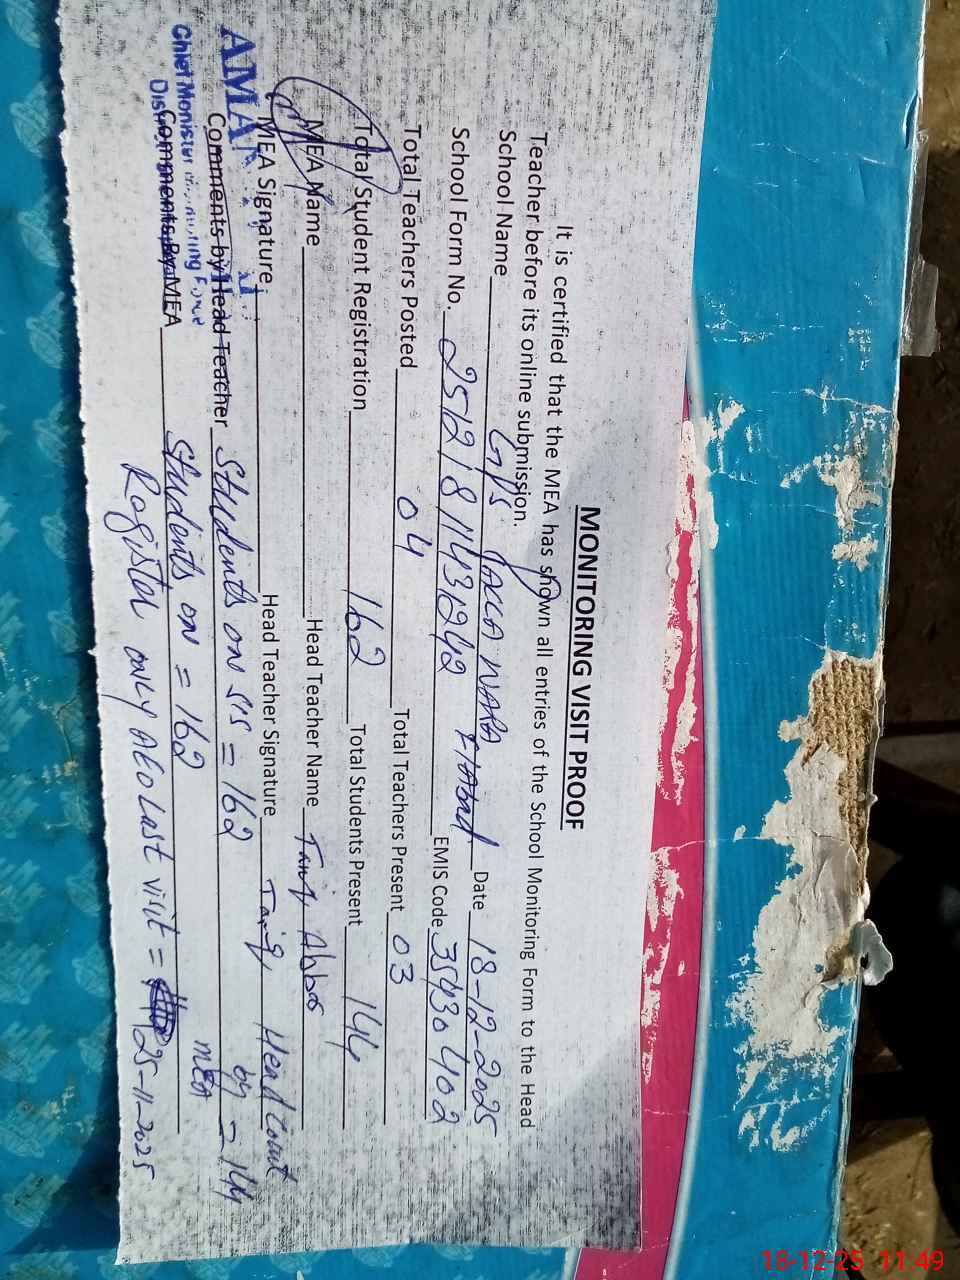 MONITORING VISIT PROOF
It is certified that the MEA has shown all entries of the School Monitoring Form to the Head
Teacher before its online submission.
School Name GPS WARA Date 18-12-2025
School Form No. 25121811431242 EMIS Code 35430402
Total Teachers Posted 04 Total Teachers Present 03
Total Student Registration 162 Total Students Present 144
MEA Name Head Teacher Name Tariq Abbas
MEA Signature Head Teacher Signature Tariq Head Count
Comments by Head Teacher Students on SIS = 162 by = 144
MEA
Comments By MEA Students on = 162
Register only AEO Last visit = 25-11-2025
18-12-25 11:49